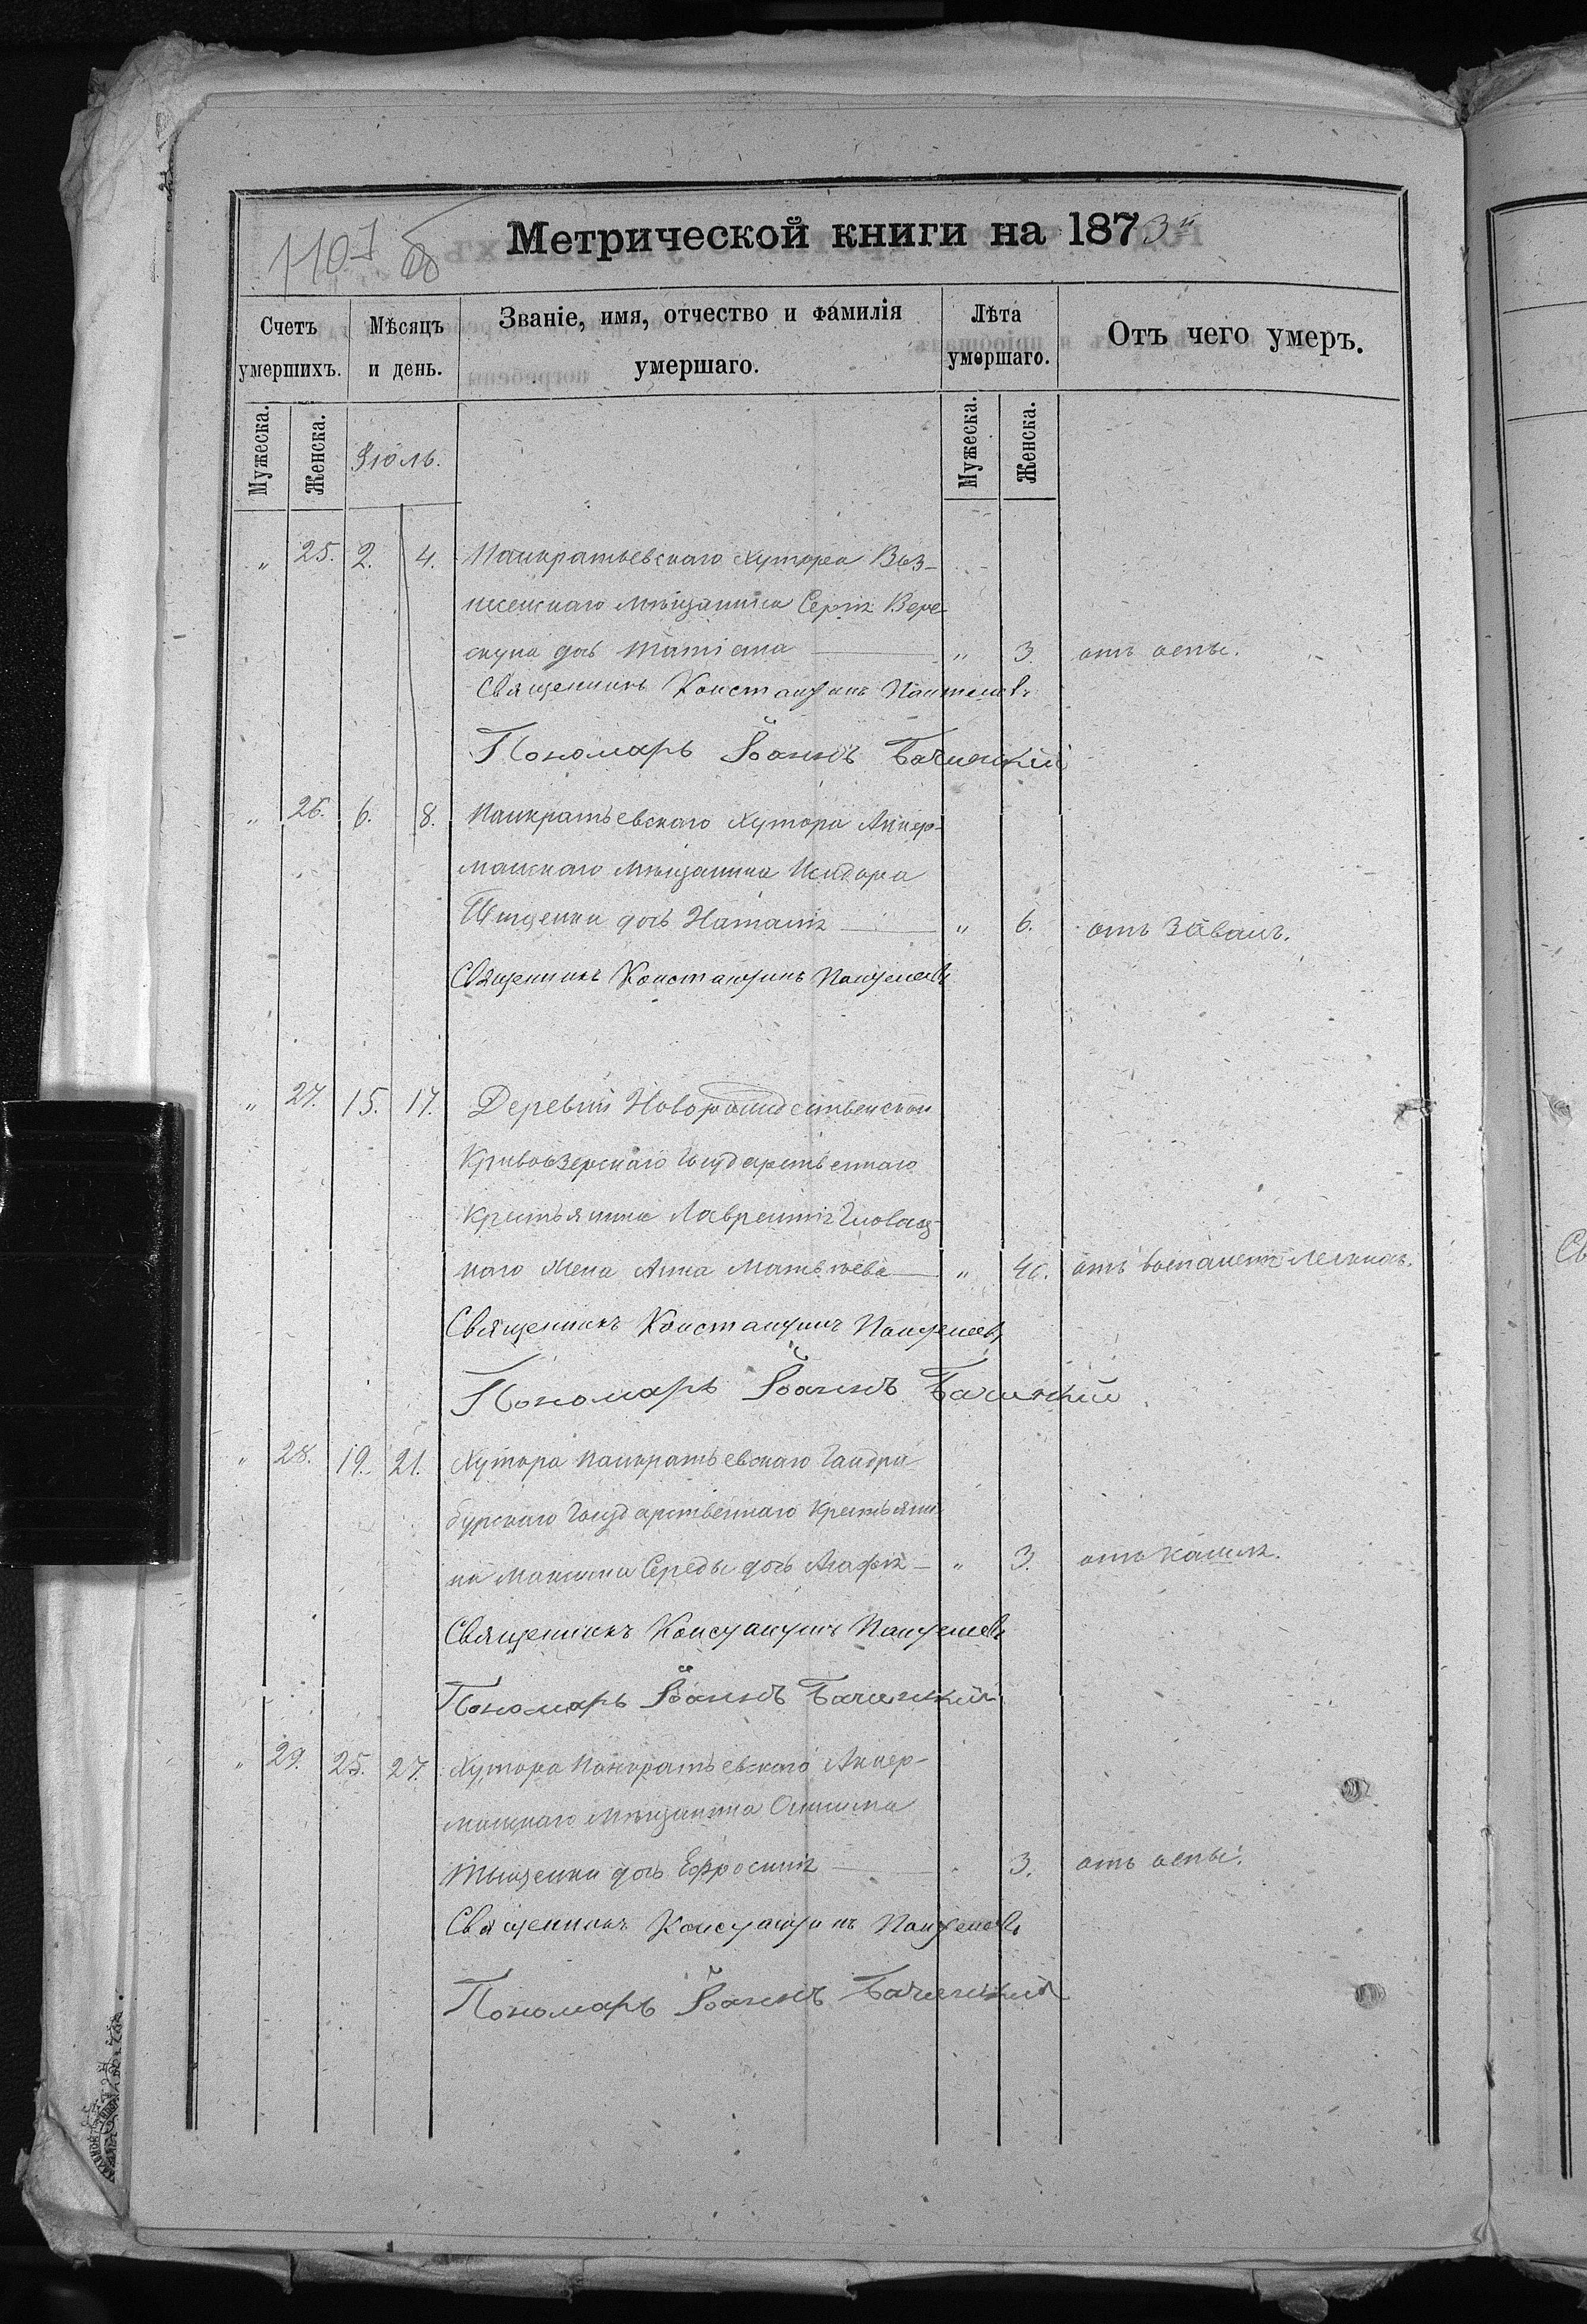 1101 об
Метрической книги на 1873й
Счетъ умершихъ.
Мѣсяцъ и день.
Званіе, имя, отчество и фамилія умершаго.
Лѣта умершаго.
Отъ чего умеръ.
Мужеска.
Женска.
Іюль.
Мужеска.
Женска.
„ 25. 2. 4. Панкратьевскаго Хутора Воз-
несенскаго мѣщанина Сергія Вере-
скуна дочь Татіана „ 3. отъ оспы.
Священникъ Константинъ Пантелеевъ
Пономарь Іоаннъ Бачинскій
„ 26. 6. 8. Панкратьевскаго Хутора Аккер-
манскаго мѣщанина Исидора
Тищенка дочь Наталія „ 6. отъ завалъ.
Священникъ Константинъ Пантелеевъ
„ 27. 15. 17. Деревни Новорождественской
Кривоозерскаго Государственнаго
Крестьянина Лаврентія
жена Анна Матвѣева „ отъ
Священникъ Константинъ Пантелеевъ
Пономарь Іоаннъ Бачинскій
„ 28. 19. 21. Хутора Панкратьевскаго Гандра-
бурскаго Государственнаго Крестьяни-
на Максима Середы дочь Агафія „ 3. отъ кашля.
Священникъ Константинъ Пантелеевъ
Пономарь Іоаннъ Бачинскій
„ 29. 25. 27. Хутора Панкратьевскаго Аккер-
манскаго мѣщанина Онисима
Тищенка дочь Ефросинія „ 3. отъ оспы.
Священникъ Константинъ Пантелеевъ
Пономарь Іоаннъ Бачинскій